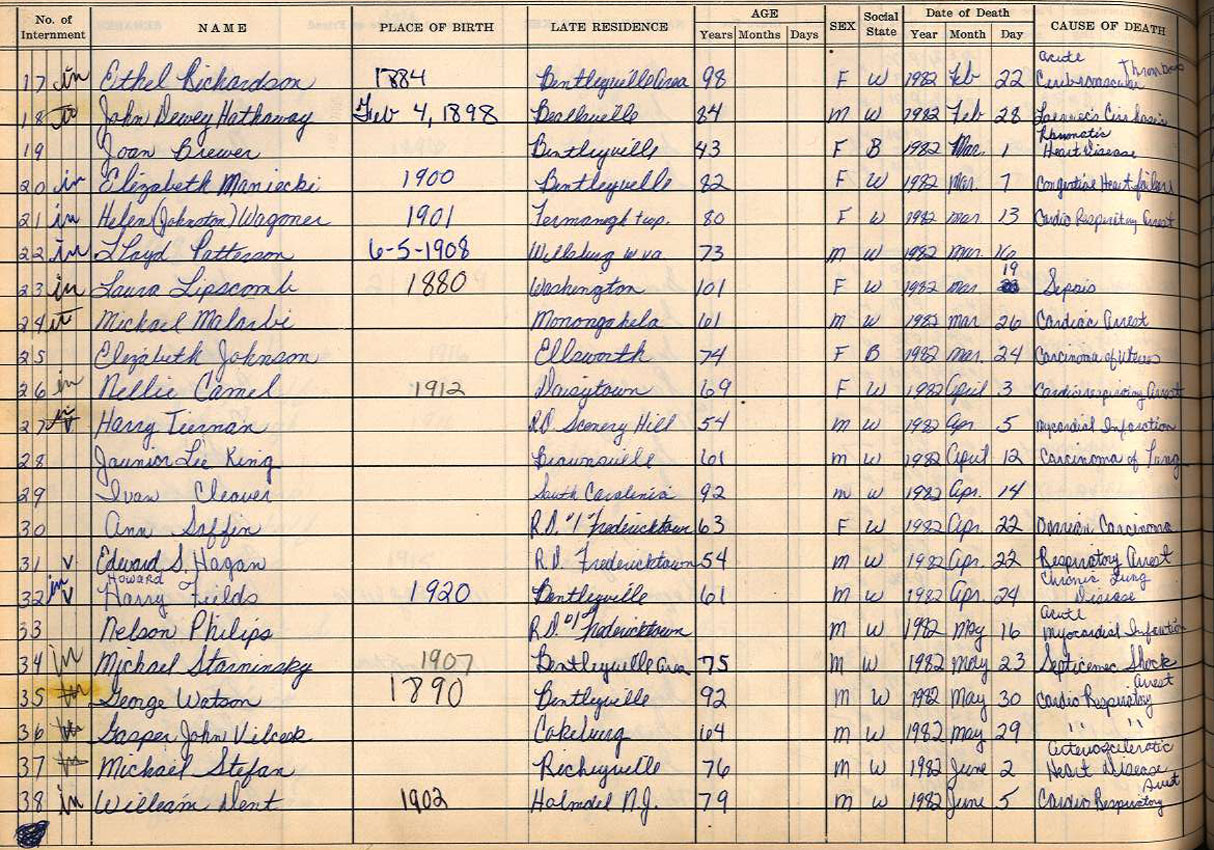 No. of Internment NAME PLACE OF BIRTH LATE RESIDENCE AGE Years Months Days SEX Social State Date of Death Year Month Day CAUSE OF DEATH
17 in Ethel Richardson 1884 Bentleyville Area 98 F W 1982 Feb 22 acute Cerebrovascular Thrombosis
18 John Dewey Hathaway Feb 4, 1898 Beallsville 84 M W 1982 Feb 28 Laennec's Cirrhosis
19 Joan Brewer Bentleyville 43 F B 1982 Mar. 1 Rheumatic Heart Disease
20 in Elizabeth Maniecki 1900 Bentleyville 82 F W 1982 Mar. 7 Congestive Heart failure
21 in Helen (Johnston) Wagoner 1901 Fermanagh twp. 80 F W 1982 Mar. 13 Cardio Respiratory Arrest
22 in Lloyd Patterson 6-5-1908 Wellsburg W Va 73 M W 1982 Mar. 16
23 in Laura Lipscomb 1880 Washington 101 F W 1982 Mar. 19 Sepsis
24 Michael Malarbi Monongahela 61 M W 1982 Mar 26 Cardiac Arrest
25 Elizabeth Johnson Ellsworth 74 F B 1982 Mar. 24 Carcinoma of Uterus
26 in Nellie Camel 1912 Daisytown 69 F W 1982 April 3 Cardiorespiratory Arrest
27 in v Harry Tiernan R.D. Scenery Hill 54 M W 1982 Apr. 5 Myocardial Infarction
28 Jaunior Lee King Brownsville 61 M W 1982 April 12 Carcinoma of Lung
29 Ivan Cleaver South Carolinia 92 M W 1982 Apr. 14
30 Ann Saffin R.D. #1 Fredericktown 63 F W 1982 Apr. 22 Ovarian Carcinoma
31 v Edward S. Hagan R.D. Fredericktown 54 M W 1982 Apr. 22 Respiratory Arrest
32 in v Howard Harry Fields 1920 Bentleyville 61 M W 1982 Apr. 24 Chronic Lung Disease
33 Nelson Philips R.D. #1 Fredericktown M W 1982 May 16 Acute Myocardial Infarction
34 in Michael Starninsky 1907 Bentleyville Area 75 M W 1982 May 23 Septicemic Shock
35 George Watson 1890 Bentleyville 92 M W 1982 May 30 Cardio Respiratory Arrest
36 Gasper John Vilcek Cokeburg 64 M W 1982 May 29 " "
37 Michael Stefan Richeyville 76 M W 1982 June 2 Arteriosceleratic Heart Disease
38 in William Dent 1902 Holmdel N.J. 79 M W 1982 June 5 Cardio Respiratory Arrest